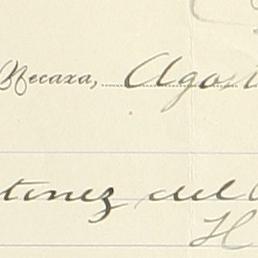 Necaxa, Agost
tinez del
H